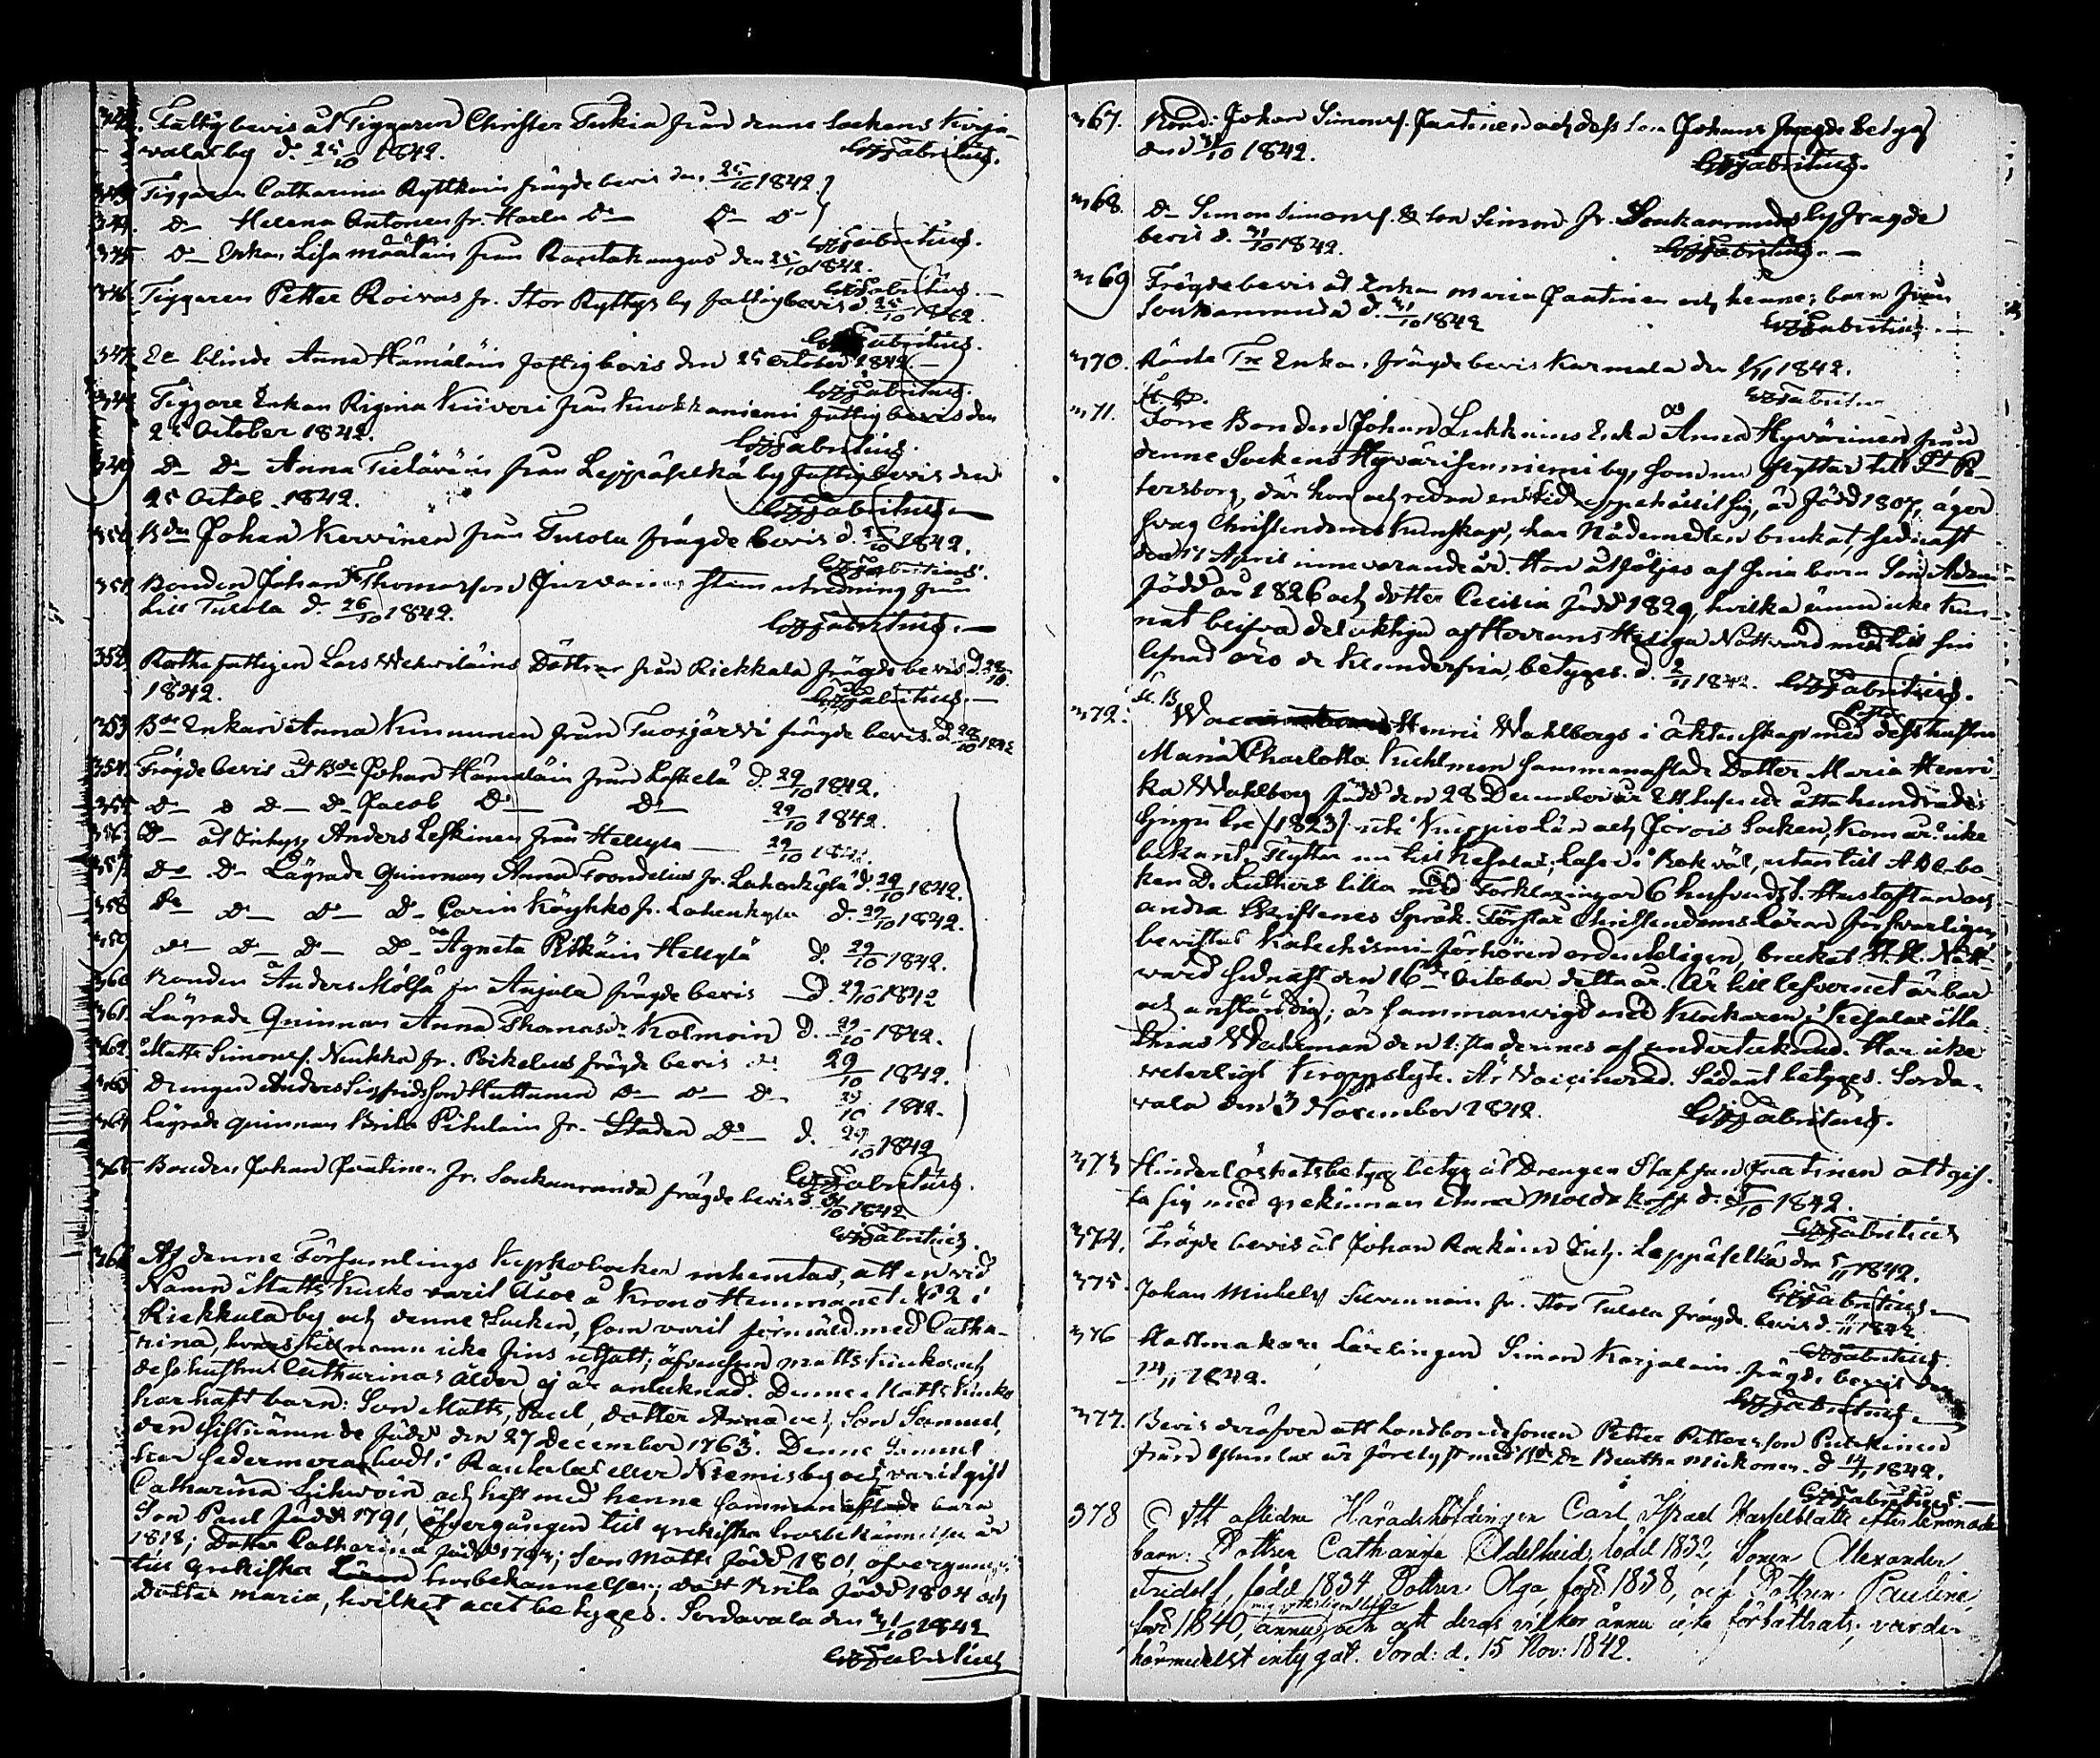 342. Fattig bevis åt Tiggaren Christer Tukia från denne Sockens Kirja-
vala by d. 25/10 1842. Fabritius.
343 Tiggaren Catharina Ryttköin frägde bevis den 25/10 1842.
344. D– Helena Antonen fr. Harlu D– D– D–
Fabritius.
345 D– Enkan Lisa Määtäin från Rantakangas den 25/10 1842.
Fabritius.
346 Tiggaren Petter Roivas fr. Stor Ryttys by fattig bevis d. 25/10 1842.
Fabritius.
347. blinde Anna Hämäläin fattig bevis den 25 October 1842.–
Fabritius.
348. Tiggare Enkan Regina Kiiveri från Kuokkaniemi fattig bevis den
25 October 1842. Fabritius.
349 D– D– Anna från Leppäselkä by fattig bevis den
25 Octob. 1842. Fabritius.
350. Bden Johan Kervinen från Tulola frägde bevis d. 1842.
Fabritius.
351 Bonden Johan Thomasson utredning från
till Tulola d. 26/10 1842. Fabritius.–
352 Rothefattigen Lars döttrar från Riekkala frägde bevis d. 28/10
1842. Fabritius.–
353 Bde Enkan Anna Kinnunen från Tuoxjärvi frägde bevis d. 28/10 1842
354. Frägde bevis åt Bde Johan Hämäläin från Leskelä d. 29/10 1842.
355 D– D D– D– Jacob D– D– 29/10 1842.
356. D– åt Inhys. Anders Leskinen från Hellyla — 29/10 1842.
357. D– D– Lägrade Quinnan Anna Frondelius fr. d. 29/10 1842.
358 D– D– D– D– Carin Köyhkö fr. d. 29/10 1842.
359 D– D– D– D– Agneta Pitkäin Hellylä d. 29/10 1842.
360 Bonden Anders Mölsä fr Anjala frägde bevis d. 29/10 1842
361. Lägrade Quinnan Anna Thomasdr Kolmoin d. 29/10 1842.
362. Matts Simonss. Nuukka fr. frägde bevis d. 29/10 1842.
363 Drengen Anders Sigfridsson Huttunen D– D– D– 29/10 1842.
364 Lägrade quinnan Brita fr. Staden D– d. 29/10 1842
Fabritius.
365 Bonden Johan Paatinen fr. Soukanranda frägde bevis d. 31/10 1842
Fabritius.
366 Af denne Församlings Kyrkoböcker inhemtas, att en vid
Namn Matts Kusko varit åboe å Krono Hemmanet No 2 i
Riekkala by och denne Socken, som varit förmäld med Catha-
rina, hvars tillnamn icke fins utsatt; äfvensom Matts Kuskos och
dess hustrus Catharinas ålder ej är antecknad. Denne Matts Kusko
har haft barn: Son Matts, Paul, dotter Anna och Son Samuel,
den sistnämnde född den 27 December 1763. Denne Samuel
har sedermera bodt i Rautalax eller Niemis by och varit gift
Catharina Lihvoin och haft med henne sammanaflade barn
Son Paul född 1791, öfvergången till grekiska trosbekännelsen år
1818; Dotter Catharina född 1794; Son Matts född 1801, öfvergången
till grekiska trosbekännelsen; dott Brita född 1804 och
Dotter Maria, hvilket allt betyges. Sordavala den 31/10 1842
Fabritius
367. Bond: Johan Simonss. Paatinen och dess Son Johans frägde betyg
den 31/10 1842. Fabritius.
368. D– Simon Simonss. & Son Simon fr. Soukanranda by frägde
bevis d. 31/10 1842. Fabritius.–
369 Frägde bevis åt Enkan Maria Paatinen och hennes barn från
Soukanranda d. 31/10 1842 Fabritius.–
370. Enkan, frägde bevis Karmala den 1/11 1842.
Fabritius
371. Förre Bonden Johan Lukkains Enka Anna Hyvärinen från
denne Sockens Hyvärisenniemi by, som nu flyttar till St Pe-
tersborg, där hon och redan en tid uppehållit sig, är född 1807, äger
svag Christendoms Kunskap, har Nådemedlen brukat, sednast
den 11 April innevarande år. Hon åtföljes af sina barn Son Adam
född år 1826 och dotter Cecilia född 1829, hvilka ännu icke kun-
nat blifva delaktiga af Herrans Heliga Nattvard med till sin
lefnad äro de klanderfria, betyges. d. 2/11 1842. Fabritius.
372. Henric Wahlbergs i äktenskap med dess hustru
Maria Charlotta Kuhlman sammanaflade Dotter Maria Henri-
ka Wahlberg född den 28 December år Ett tusende åtta hundrade
tjugu tre /1823/ uti Kuopio Län och Jorois Socken, kom år icke
bekant, Flyttar nu till Kesalax; Läser i Bok väl, utantill ABC-bo-
ken D. Luthers lilla med Förklaringar 6 hufvudst. Hustaflan och
andra Skriftenes Språk. Förstår Christendoms Läran försvarligen,
bevistat Katechismi-förhören ordenteligen, brukat H. H. Natt-
vard sednast den 16de October detta år. Är till lefvernet ärbar
och anständig; är sammanvigd med Klockaren i Kesalax Ma-
thias Weckman den 1:sta dennes af undertecknad. Har icke
veterligt Kroppslyte. Är Vaccinerad. Sådant betyges. Sorda-
vala den 3 November 1842. Fabritius.
373 Hinderlöshetsbetyg betyg åt Drengen Staffan Paatinen att gif-
ta sig med grekinnan Anna d. 1842.
Fabritius
374. Frägde bevis åt Johan Inh. Leppäselkä den 5/11 1842.
Fabritius.–
375. Johan Michelss Silvennoin fr. Stor Tulola frägde bevis d. 1842
Fabritius.
376 Hattmakare Lärlingen Simon Karjalain frägde bevis den
14/11 1842. Fabritius.–
377. Bevis deröfver att landbondesonen Petter Pettersson Purkinen
från är förelyst med Bde Dr Beatha Mickonen. d 14/11 1842.
Fabritius.–
378 Att aflidne Häradshöfdingen Carl Israel Hasselblatts efterlemnade
barn: Dottren Catharina Adelheid, född 1832, Sonen Alexander
Fridolf, född 1834, Dottren Olga, född 1838, och Dottren Pauline,
född 1840, ännu och att deras vilkor ännu icke förbättrats, varder
härmedelst intygat. Sord: d. 15 Nov: 1842.